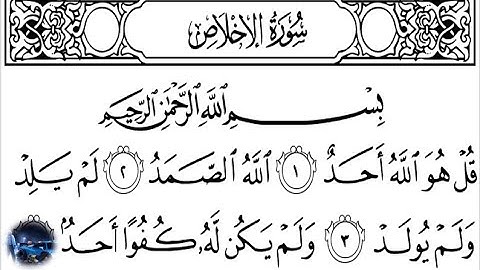 سُورَةُ الإِخْلَاصِ
بِسْمِ اللَّهِ الرَّحْمَٰنِ الرَّحِيمِ
قُلْ هُوَ ٱللَّهُ أَحَدٌ ١ ٱللَّهُ ٱلصَّمَدُ ٢ لَمْ يَلِدْ
وَلَمْ يُولَدْ ٣ وَلَمْ يَكُن لَّهُۥ كُفُوًا أَحَدٌۢ